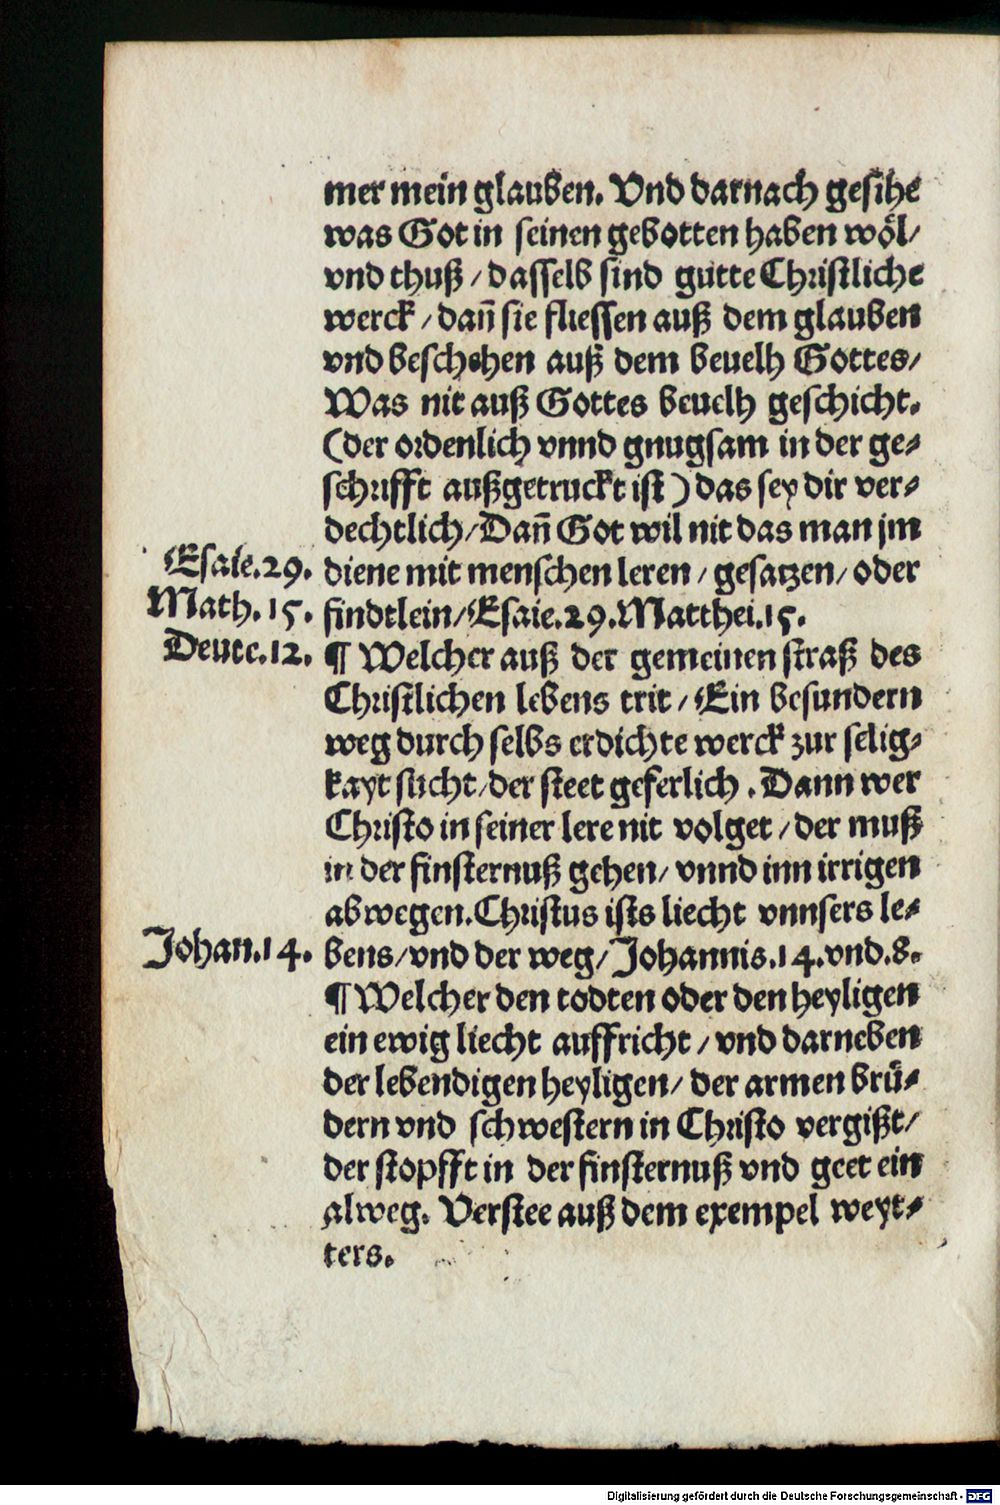 mer mein glauben. Vnd darnach gesihe
was Got in seinen gebotten haben wöl/
vnd thuß / dasselb sind gutte Christliche
werck / dañ sie fliessen auß dem glauben
vnd beschehen auß dem beuelh Gottes/
Was nit auß Gottes beuelh geschicht.
(der ordenlich vnnd gnugsam in der ge-
schrifft außgetruckt ist) das sey dir ver-
dechtlich/Dañ Got wil nit das man jm
Esaie.29. diene mit menschen leren / gesatzen/ oder
Math. 15. findtlein/Esaie.29.Matthei.15.
Deute.12. ¶ Welcher auß der gemeinen straß des
Christlichen lebens trit / Ein besundern
weg durch selbs erdichte werck zur selig-
kayt sucht/der steet geferlich . Dann wer
Christo in seiner lere nit volget / der muß
in der finsternuß gehen/ vnnd inn irrigen
abwegen.Christus ists liecht vnnsers le-
Johan.14. bens/vnd der weg/ Johannis.14.vnd.8.
¶ Welcher den todten oder den heyligen
ein ewig liecht auffricht / vnd darneben
der lebendigen heyligen/ der armen brü-
dern vnd schwestern in Christo vergißt/
der stopfft in der finsternuß vnd geet ein
alweg. Verstee auß dem exempel weyt-
ters.
Digitalisierung gefördert durch die Deutsche Forschungsgemeinschaft - DFG